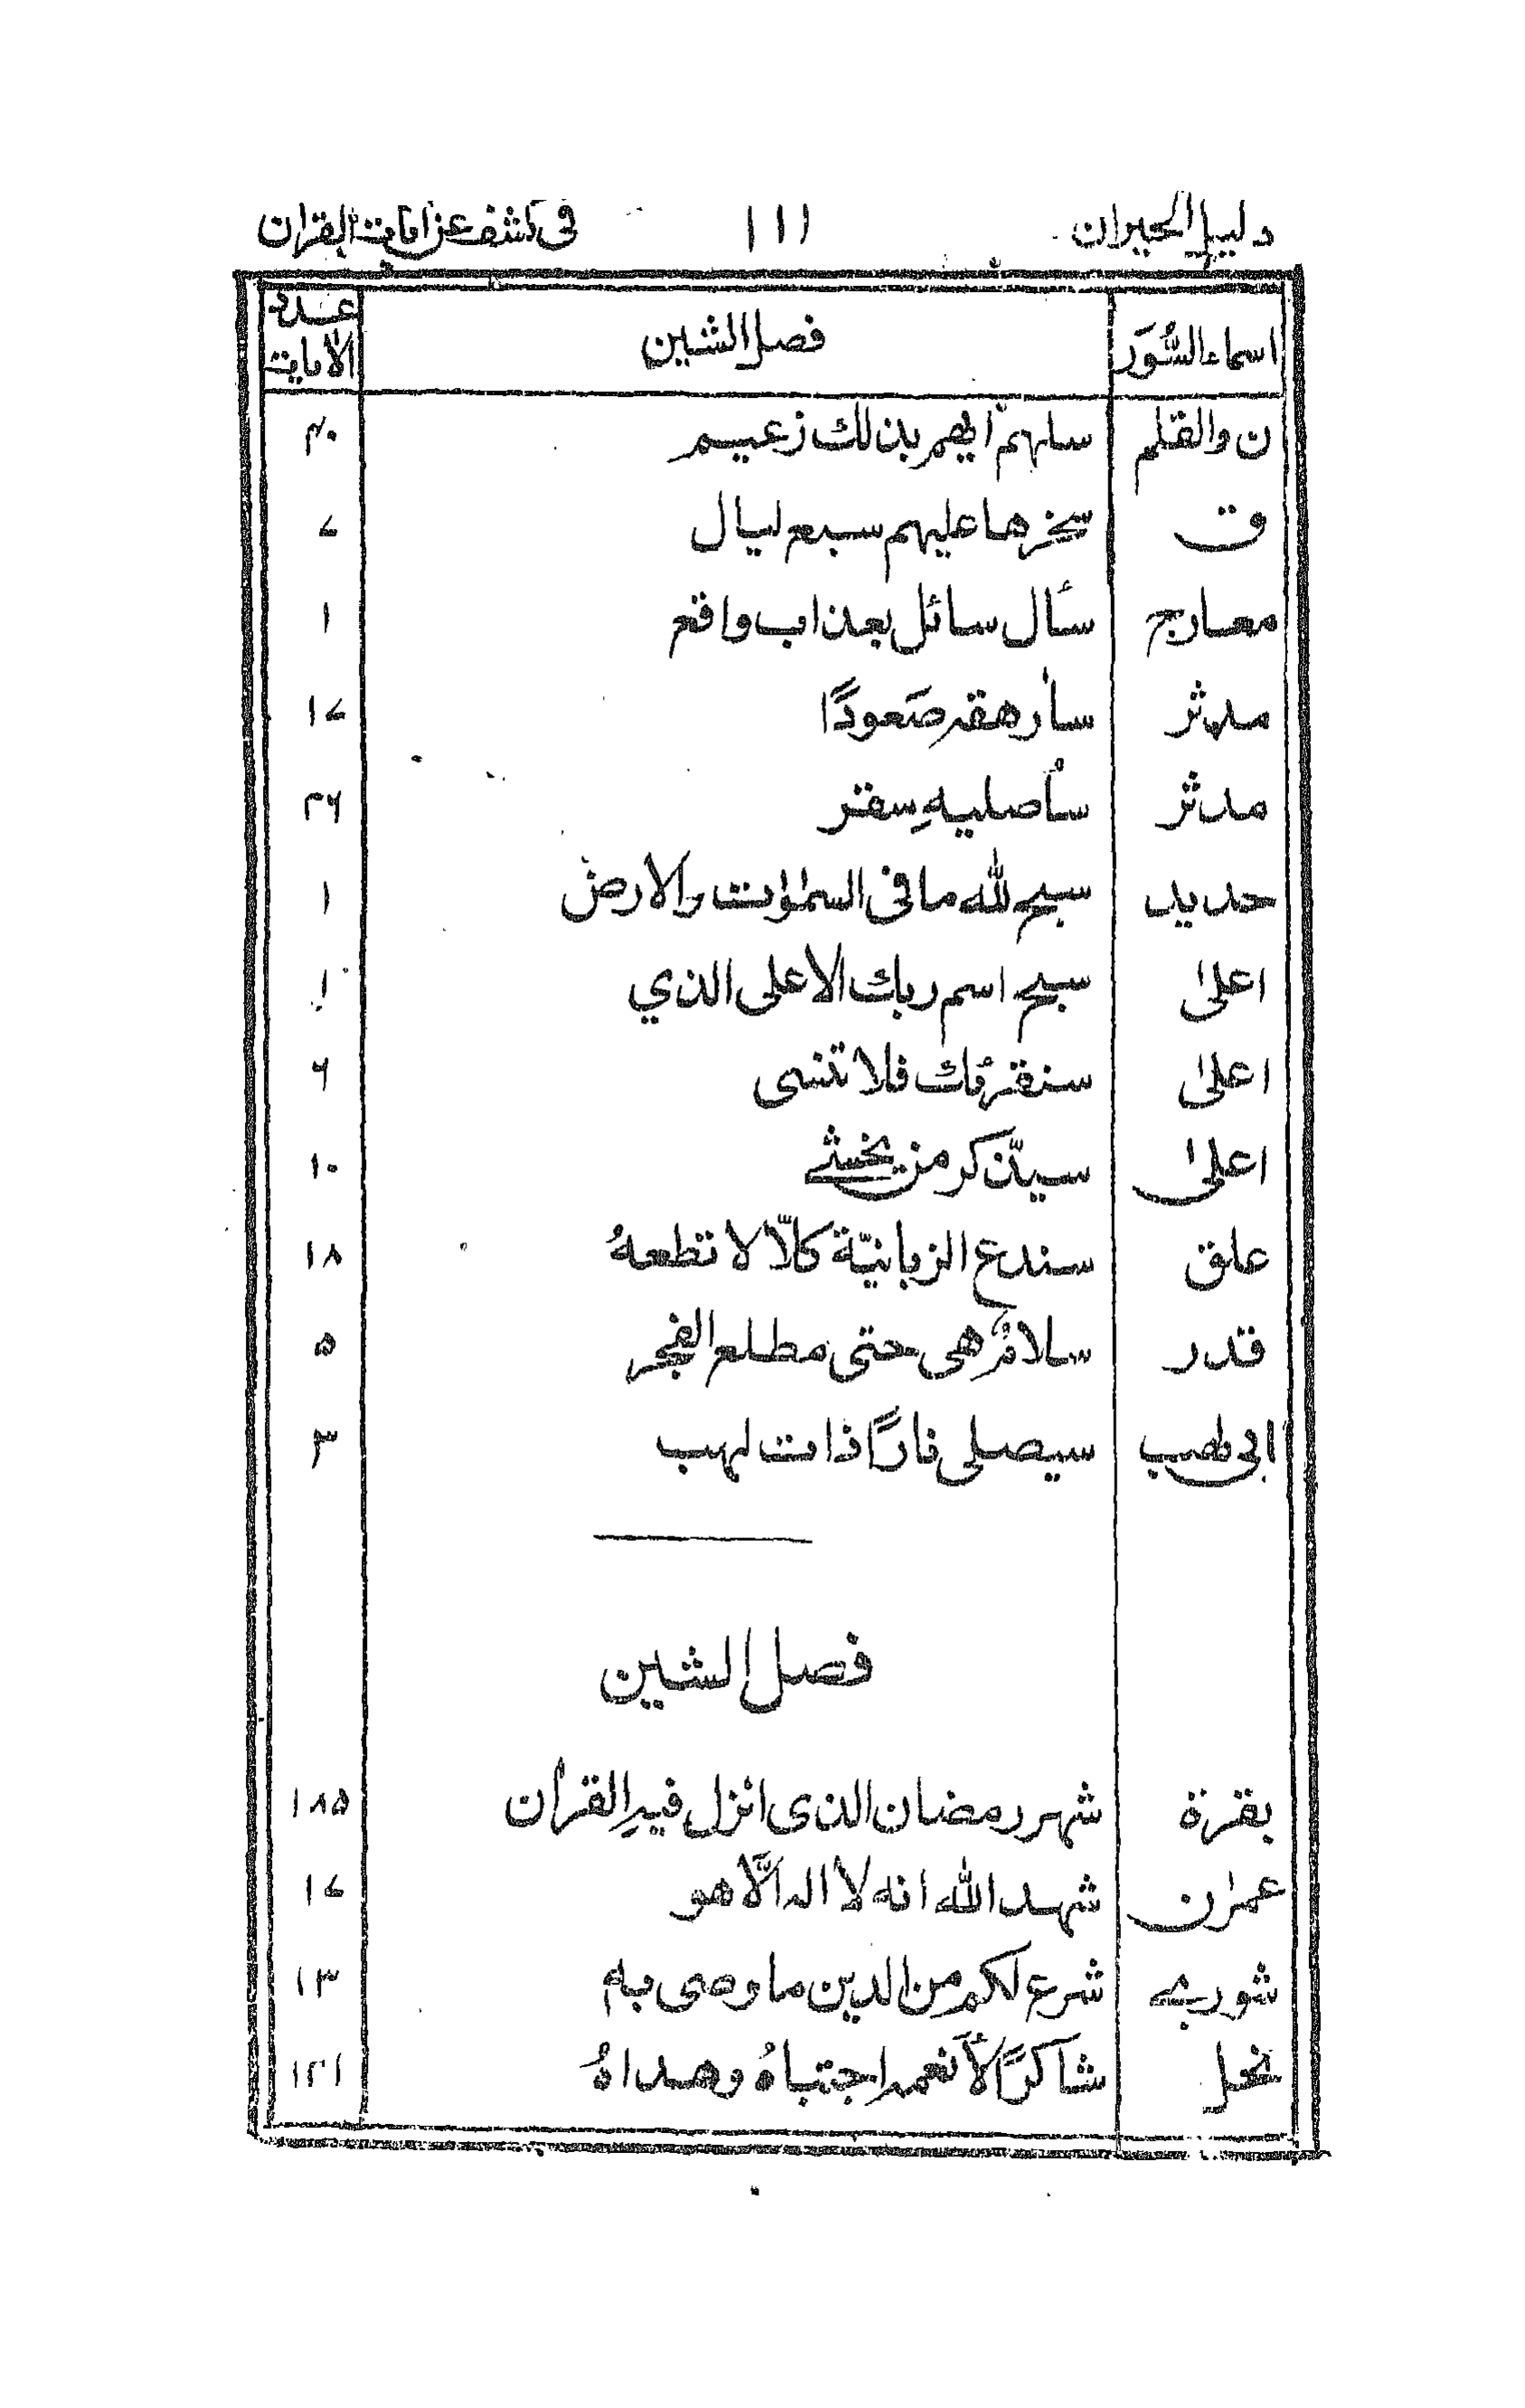 دليل الحيران ١١١ فى كشف عن ايات القران
اسماء السُّوَر فصل الشين عدد الاٰيات
ن والقلم سلهم ايهم بذلك زعيم ۴۰
ق سخرها عليهم سبع ليال ۷
معارج سأل سائل بعذاب واقع ۱
مدثر سأرهقه صَعودًا ۱۷
مدثر سأصليهِ سقر ۲۶
حديد سبح لله ما فى السمٰوٰت والارض ۱
اعلىٰ سبح اسم ربك الاعلى الذي ۱
اعلىٰ سنقرئك فلا تنسى ۶
اعلىٰ سيذّكر من يخشے ۱۰
علق سندع الزبانيّة كلّا لا تطعهُ ۱۸
قدر سلامٌ هى حتى مطلع الفجر ۵
ابى لهب سيصلى نارًا ذات لهب ۳
فصل الشين
بقرة شهر رمضان الذى انزل فيهِ القرأن ۱۸۵
عمرٰن شهد الله انه لا اله الّا هو ۱۷
شورے شرع لكم من الدين ما وصى به ۱۳
نحل شاكرًا لأنعمه اجتباهُ وهداهُ ۱۲۱